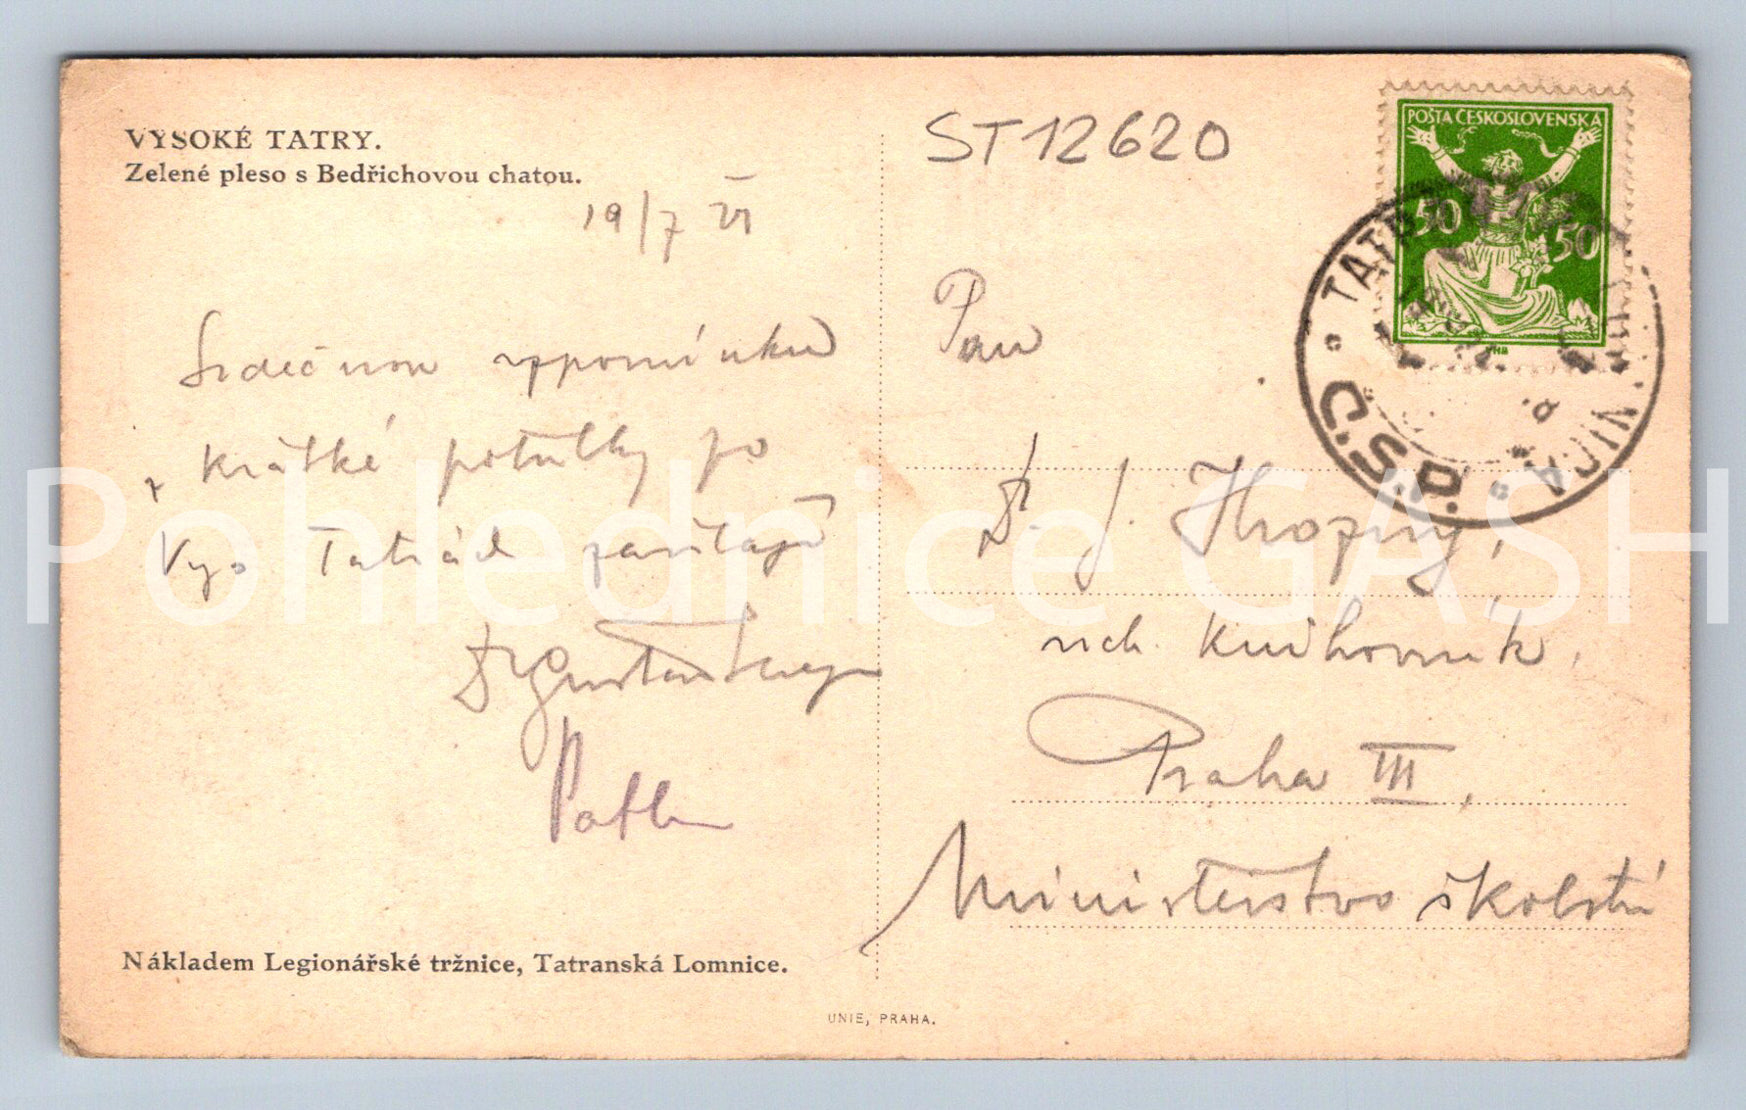 VYSOKÉ TATRY.
Zelené pleso s Bedřichovou chatou.
19/7 21
Srdečnou vzpomínku
z krátké potulky po
Vys. Tatrách zasílají
Dr
ST12620
POŠTA ČESKOSLOVENSKÁ
50 50
TATR
Č.S.P.
Pan
Dr. J. Hrozný,
vrch. knihovník,
Praha III,
Ministerstvo školství
Nákladem Legionářské tržnice, Tatranská Lomnice.
UNIE, PRAHA.
Pohlednice GASH